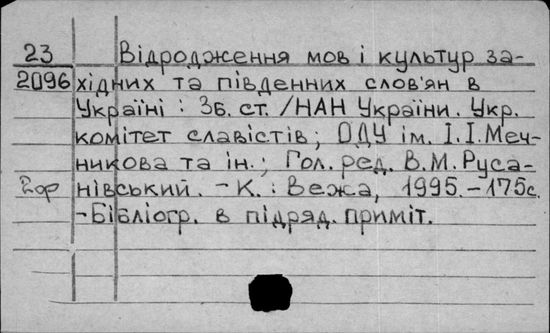 23 Відродження мов і культур за-
2096 хідних та південних слов'ян в
Україні : Зб. ст. /НАН України. Укр.
комітет славістів; ОДУ ім. І.І.Меч-
никова та ін.; Гол. ред. В.М.Руса-
2ор нівський. - К. : Вежа, 1995. - 175с.
- Бібліогр. в підряд. приміт.